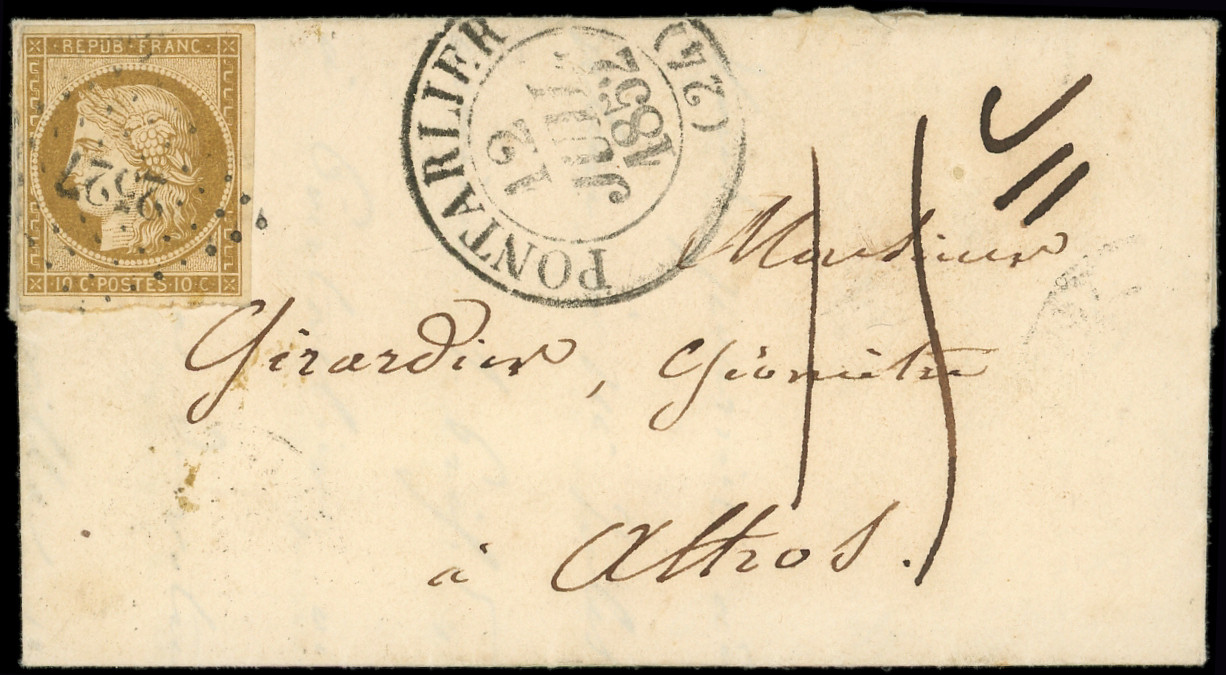 REPUB·FRANC
2527
10 C·POSTES·10 C
PONTARLIER (24)
12
JUIL
1852
15
Monsieur
Girardier, Géomètre
à Attros.